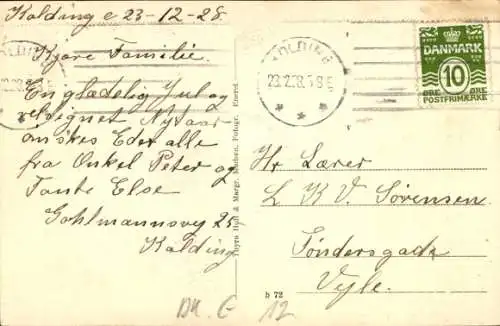 Kolding e 23-12-28.
Kjære Familie.
En glædelig Jul og
velsignet Nytaar
ønskes Eder alle
fra Onkel Peter og
Tante Else
Gohlmannsvej 25
Kolding
KOLDING
23.2.28.
DANMARK
10
ØRE ØRE
POSTFRIMÆRKE
Hr Lærer
L K V. Sørensen
Tøndersgade
Vejle.
b 72
DK. G
12